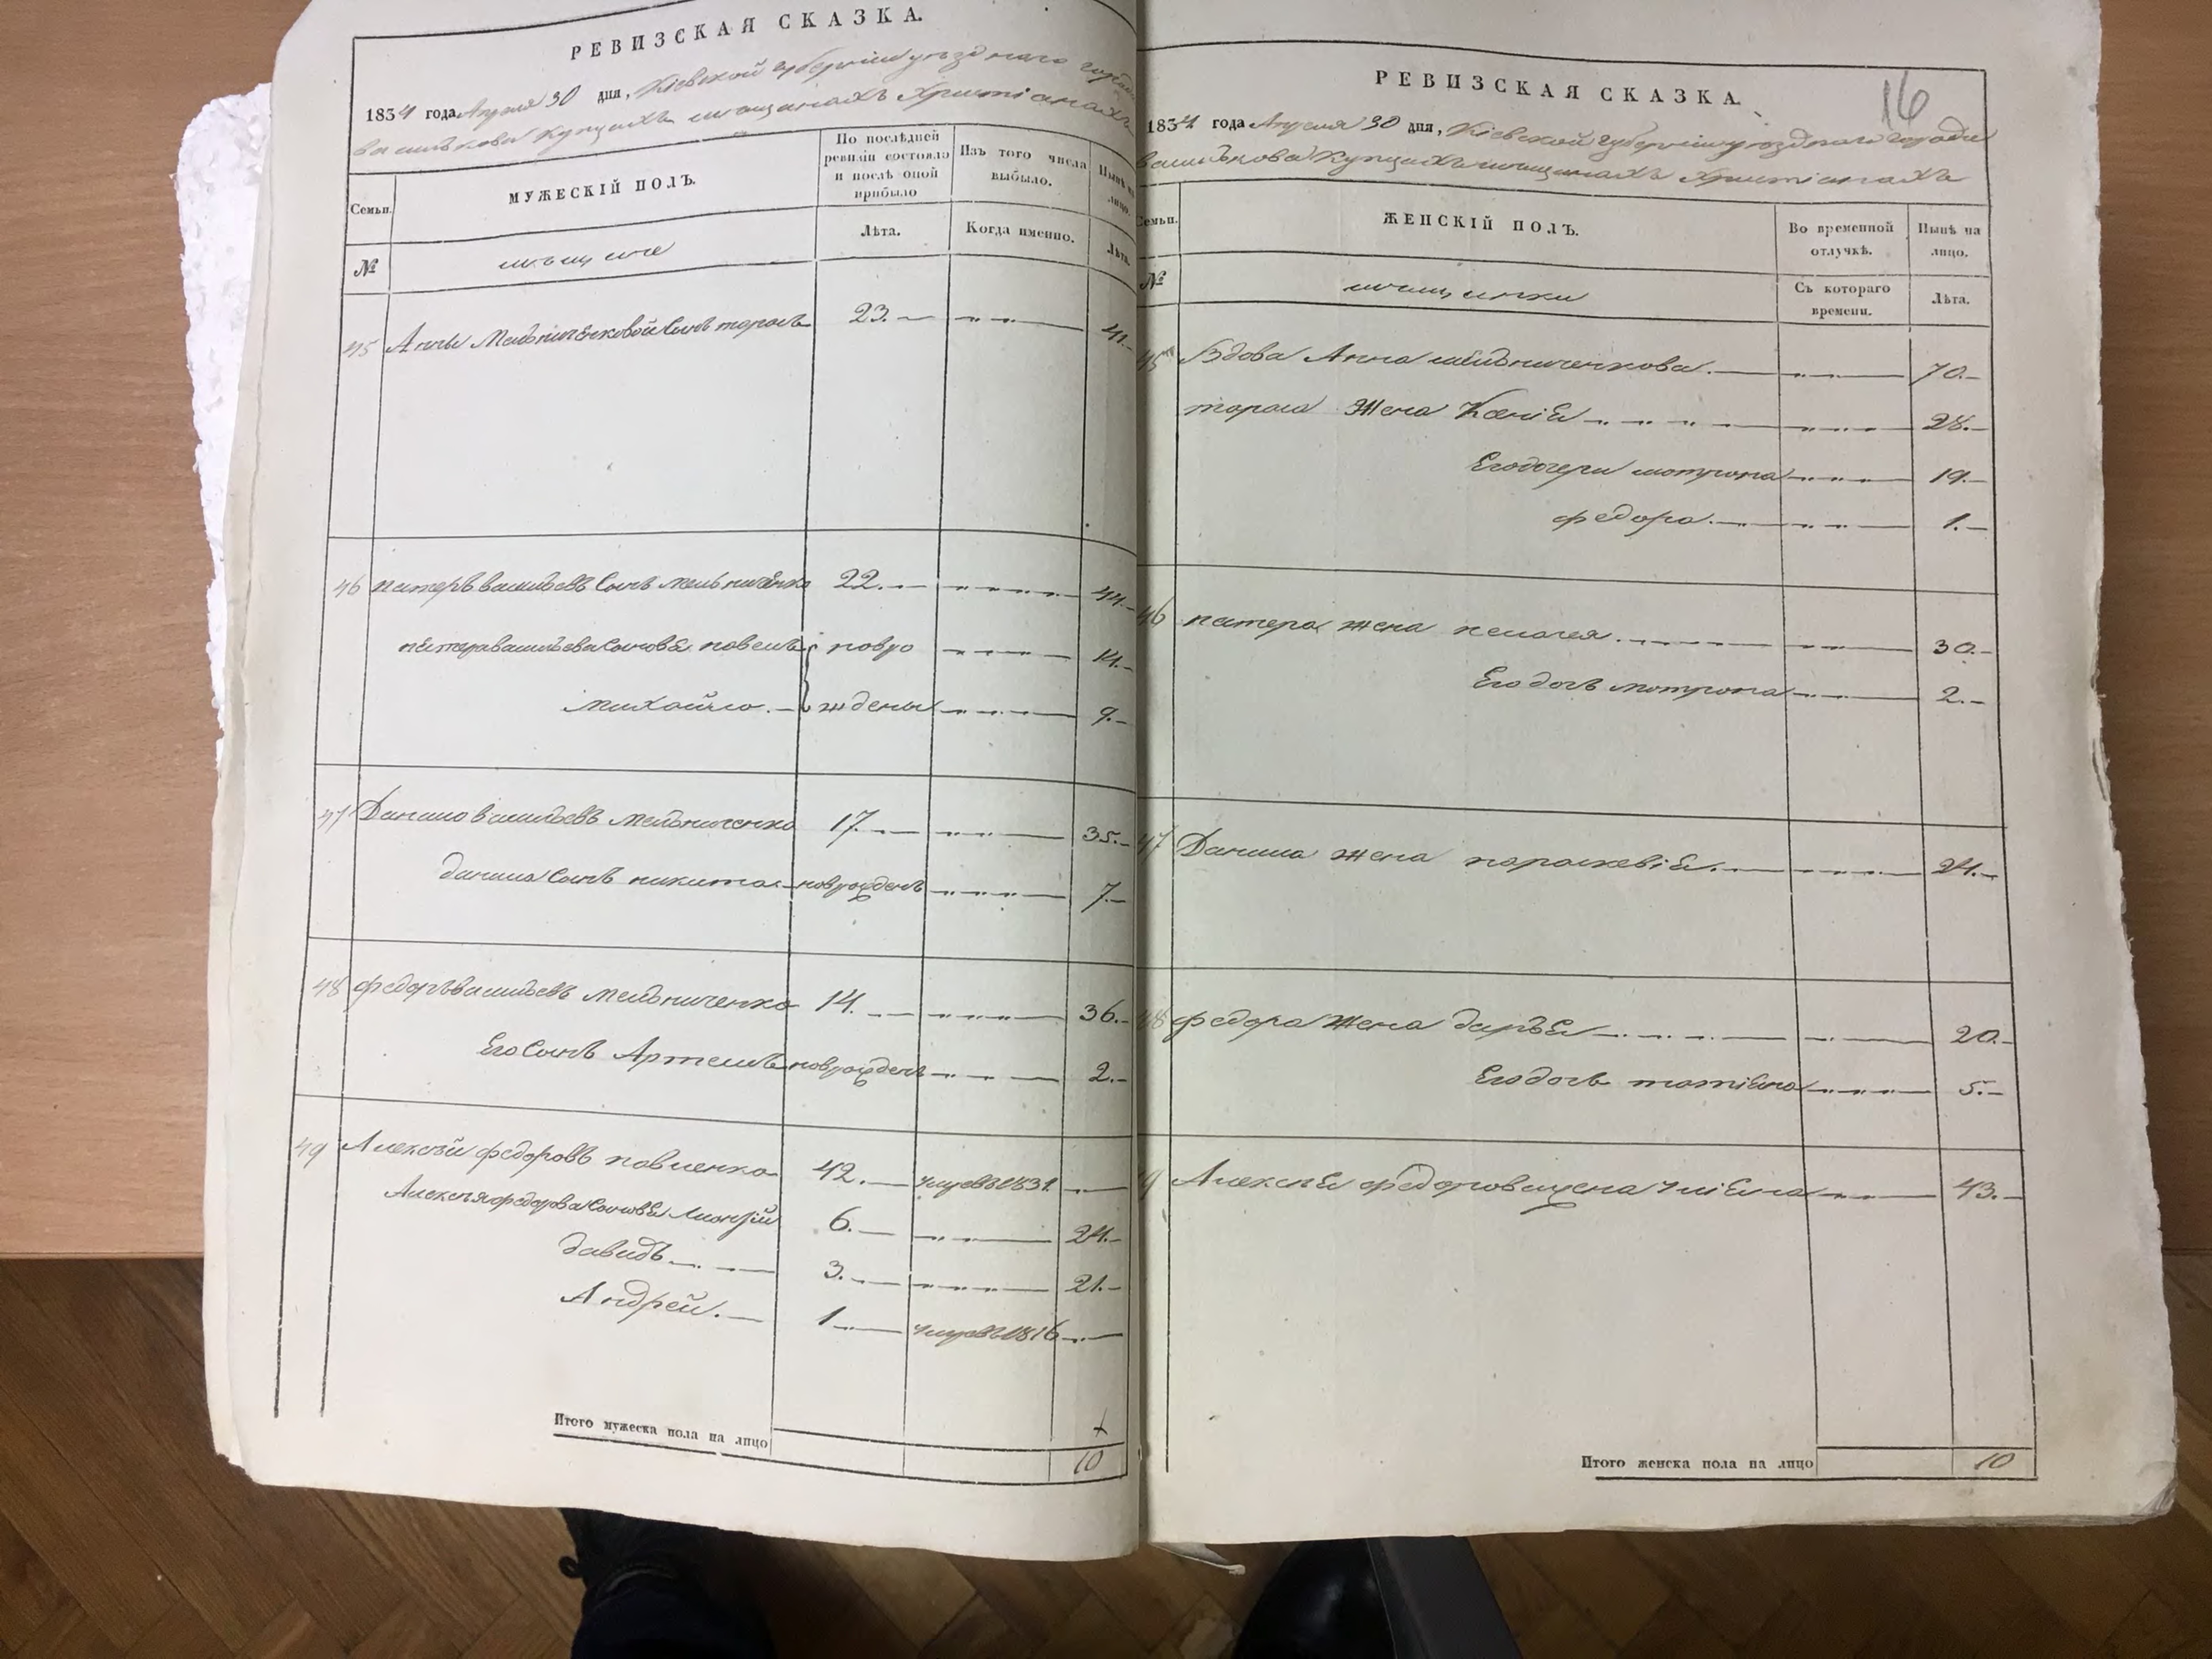 РЕВИЗСКАЯ СКАЗКА.
1834 года Апреля 30 дня, Кіевской губерніи уѣзднаго города
василькова купцахъ мѣщанахъ христіанахъ
Семьи.
МУЖЕСКІЙ ПОЛЪ.
По послѣдней ревизіи состояло и послѣ оной прибыло
Изъ того числа выбыло.
Нынѣ на лицо.
№
мѣщане
Лѣта.
Когда именно.
Лѣта.
45 Анны Мельниченковой сынъ тарасъ 23. 41.
46 петеръ васильевъ Сынъ мельниченко 22. 44.
петера васильева Сыновья павелъ новро 14.
михайло. ждены 9.
47 Данило васильевъ мельниченко 17. 35.
данила Сынъ никита новрожденъ 7.
48 федоръ васильевъ мельниченко 14. 36.
Его Сынъ Артемъ новрожденъ 2.
49 Алексѣй федоровъ павленко 42. умре въ 1831.
Алексѣя федорова Сыновья 6. 24.
давидъ 3. 21.
Андрей. 1 умре въ 1816
Итого мужеска пола на лицо 10
РЕВИЗСКАЯ СКАЗКА.
16
1834 года Апреля 30 дня, Кіевской губерніи уѣзднаго города
василькова купцахъ мѣщанахъ христіанахъ
Семьи.
ЖЕНСКІЙ ПОЛЪ.
Во временной отлучкѣ.
Нынѣ на лицо.
№
мѣщанки
Съ котораго времени.
Лѣта.
45 Вдова Анна мельниченкова. 70.
тараса жена Ксенія 28.
Его дочери мотрона 19.
федора. 1.
46 петера жена пелагея. 30.
Его дочь мотрона 2.
47 Данила жена параскевія. 24.
48 федора жена дарья 20.
Его дочь татіяна 5.
49 Алексѣя федорова жена уліяна 43.
Итого женска пола на лицо 10